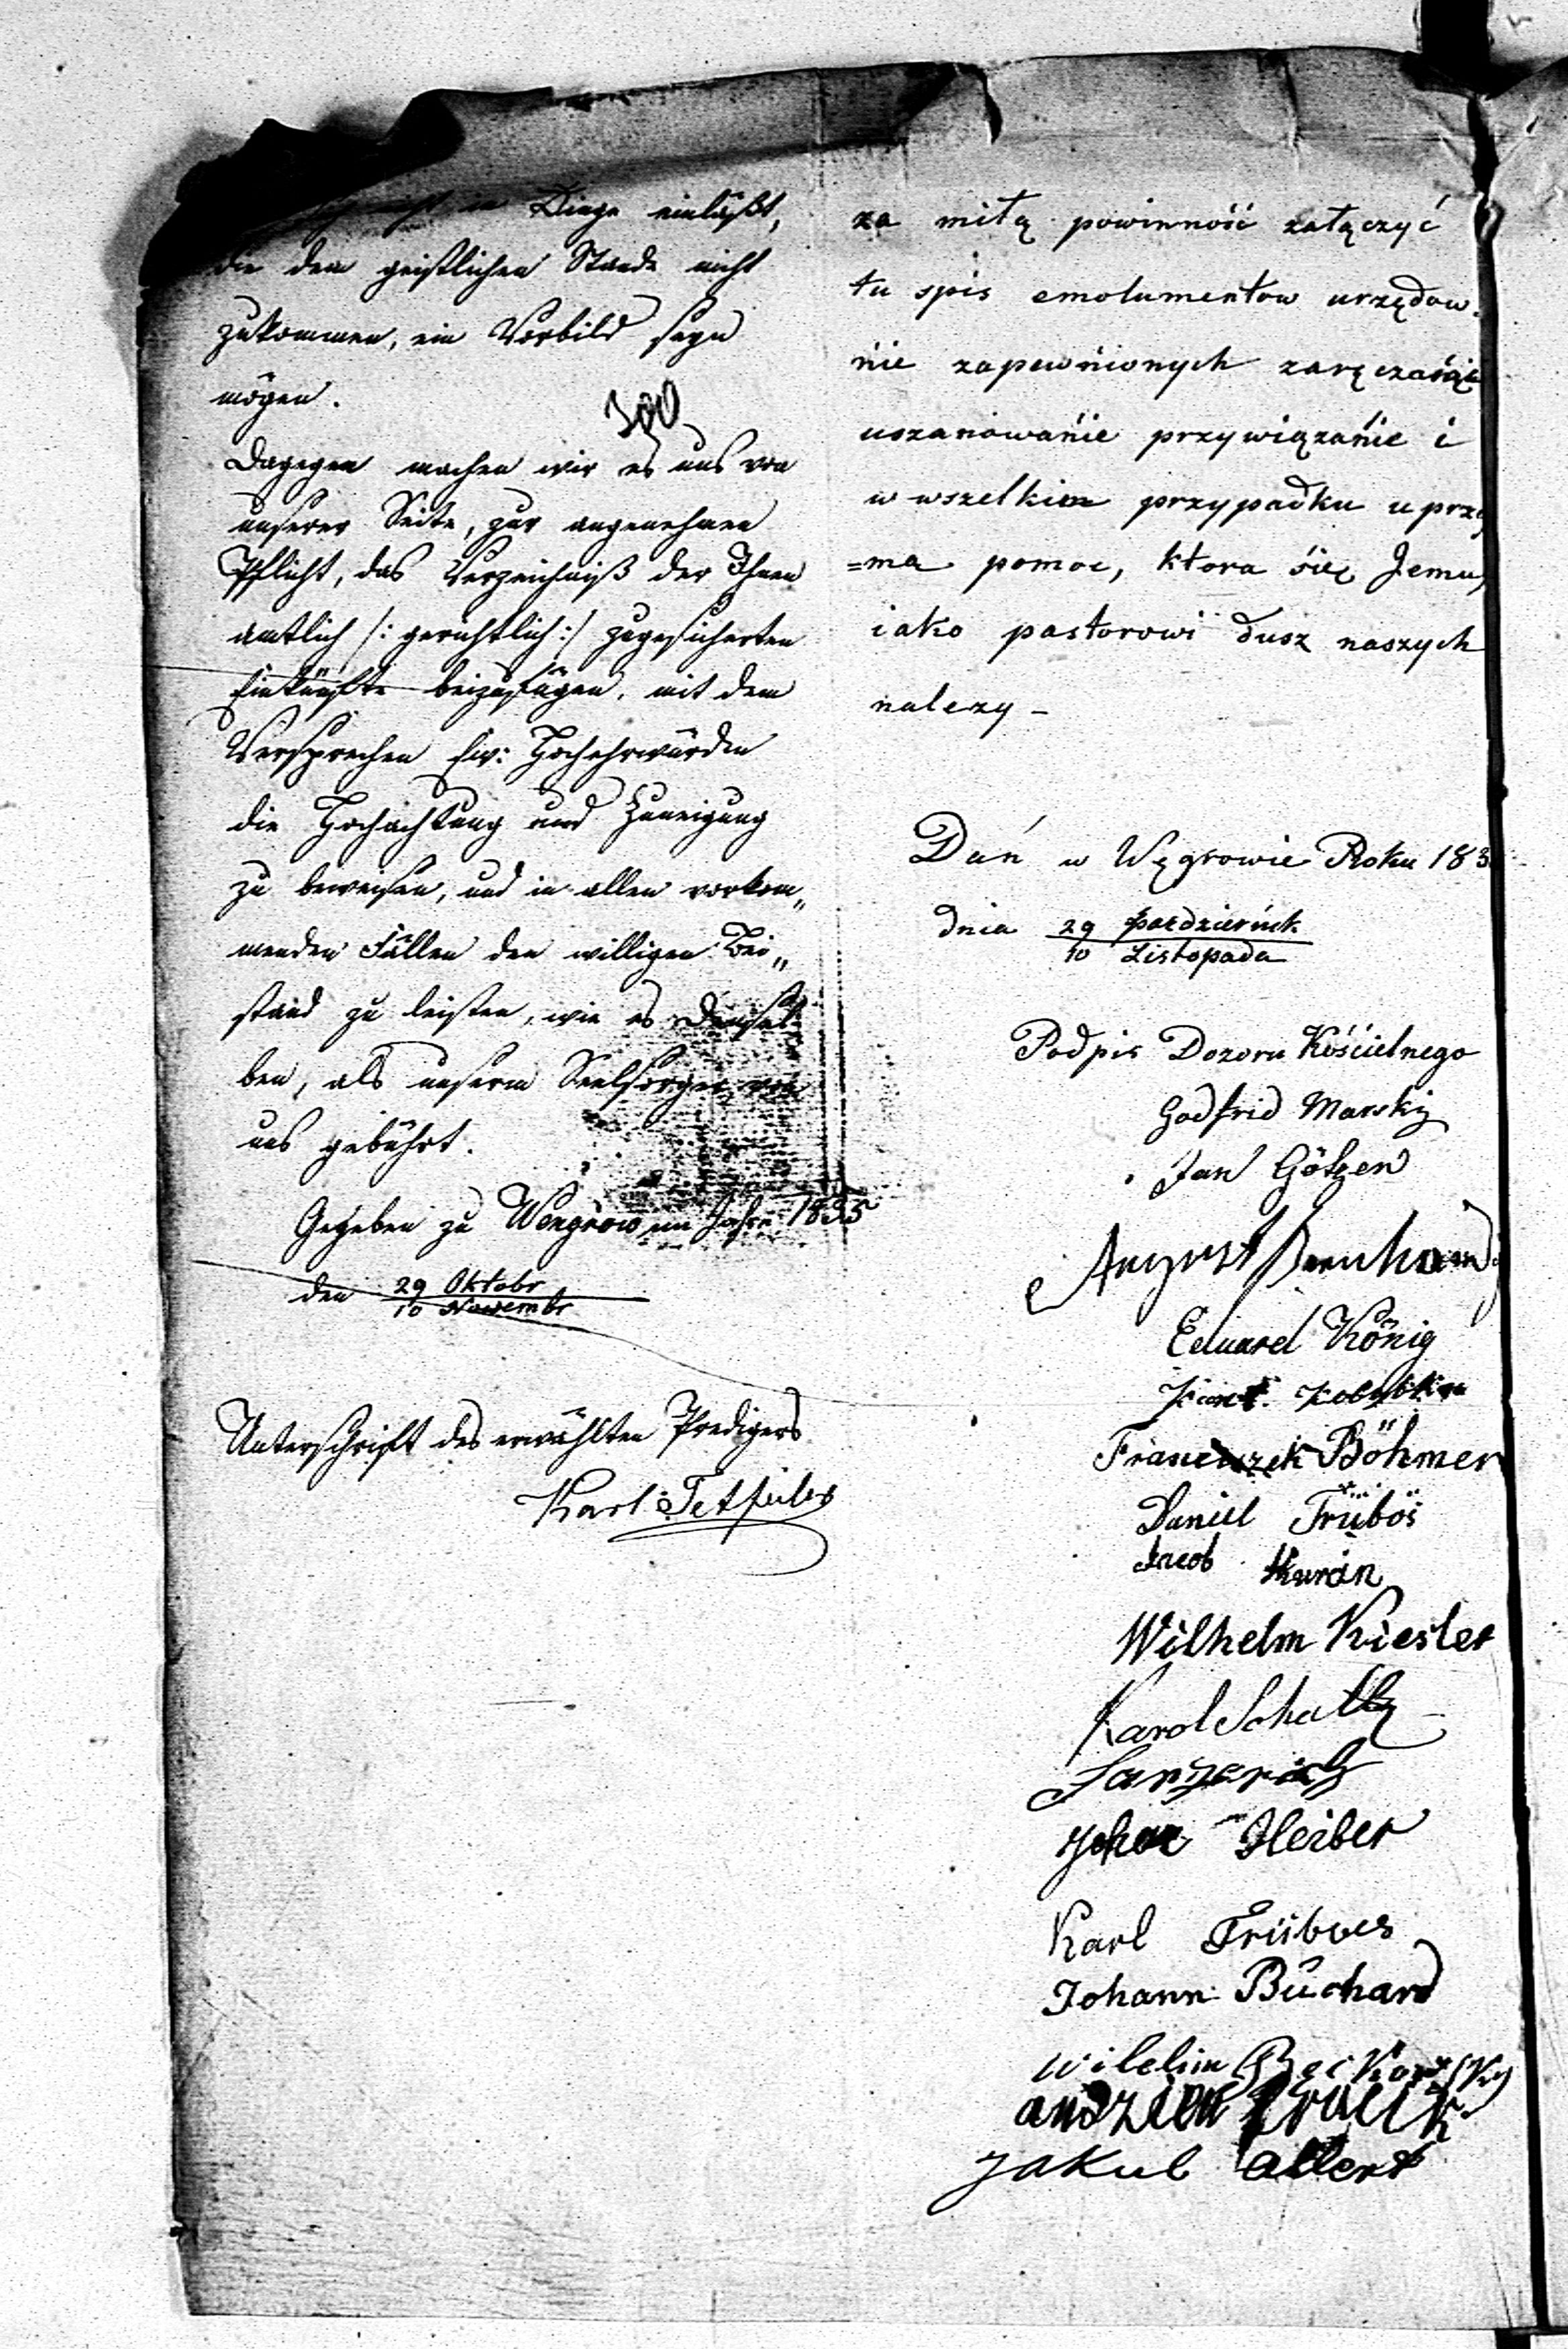 in Dinge einläßt,
die dem geistlichen Stande nicht
zukommen, ein Vorbild seyn
mögen.
300
Dagegen machen wir es uns von
unserer Seite, zur angenehmen
Pflicht, das Verzeichniß der Ihnen
amtlich /: gerichtlich :/ zugesicherten
Einkünfte beizufügen, mit dem
Versprechen Ew: Hochehrwürden
die Hochachtung und Zuneigung
zu beweisen, und in allen vorkom„
menden Fällen den willigen Bei„
stand zu leisten, wie es Densel
ben, als unserm Seelsorger, von
uns gebührt.
Gegeben zu Wengrow im Jahre 1835
den 29 Oktobr
10 Novembr
Unterschrift des erwählten Predigers
Karl
za miłą powinność załączyć
tu spis emolumentow urzędow
nie zapewnionych zaręczaiąc
uszanowanie przywiązanie i
w wszelkim przypadku uprzy
=ma pomoc, ktora się Jemu,
iako pastorowi dusz naszych
nalezy –
Dan w Węgrowie Roku 183
dnia 29 Pazdziernik
10 Listopada
Podpis Dozoru Kościelnego
Godfrid Marsky
Jan Götzen
August Bernhard
Eduard König
Franciszek Böhmer
Daniel Trübös
Jacob
Wilhelm Kiesler
Karol Schultz
Heiber
Karl Trüboes
Johann Buchard
Jakub Allert